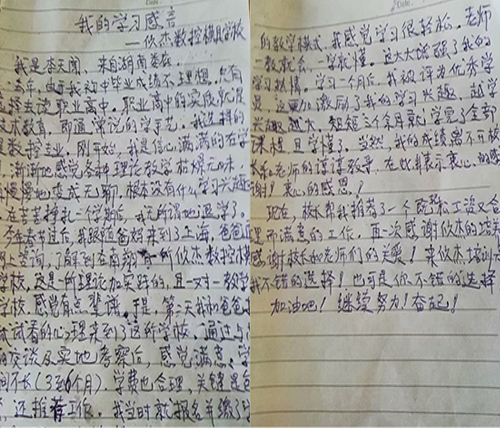 我的学习感言
——依杰数控模具学校
我是李天闻，来自湖南娄底
去年，由于我初中毕业成绩不理想，只有
选择去读职业高中。职业高中的实质就是
技术教育，即通常说的学手艺。我选择的
是数控专业，刚开始，我是信心满满的在学
，渐渐地感觉各种理论教学枯燥无味，
慢慢地变成无聊，根本没有什么学习兴趣
在苦苦挣扎一个学期后，我无所谓地退学了。
今年春节过后，我跟随爸妈来到了上海，爸爸
网上咨询，了解到在南翔有一所依杰数控
学校，这是一所理论加实践的，且一对一教学
学校，感觉有点靠谱。于是，第二天我和爸爸
试试看的心理来到了这所学校。通过与
的交谈及实地考察后，感觉满意。学
间不长（3到6个月）。学费也合理，关键是
，还推荐工作。我当时就报名并缴
的教学模式，我感觉学习很轻松。老师
一教就会，一学就懂。这大大提醒了我的
学习热情。学习一个月后，我被评为优秀学
员，这更加激励了我的学习兴趣，越学
兴趣越大，短短三个余月就学完了全部
课程且学懂了。当然，我的成绩离不开
校长和老师们的谆谆教导，在此表示衷心的感
谢！衷心的感恩！
现在，校长帮我推荐了一个既拿工资又合
理而满意的工作，再一次感谢依杰的培养
感谢校长和老师们的关爱！来依杰培训是
我不错的选择！也可是你不错的选择
加油吧！继续努力！奋起！